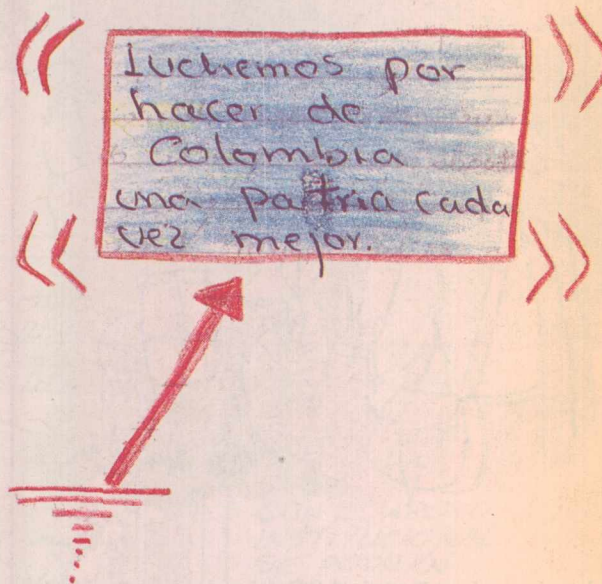 Luchemos por
hacer de
Colombia
una patria cada
vez mejor.